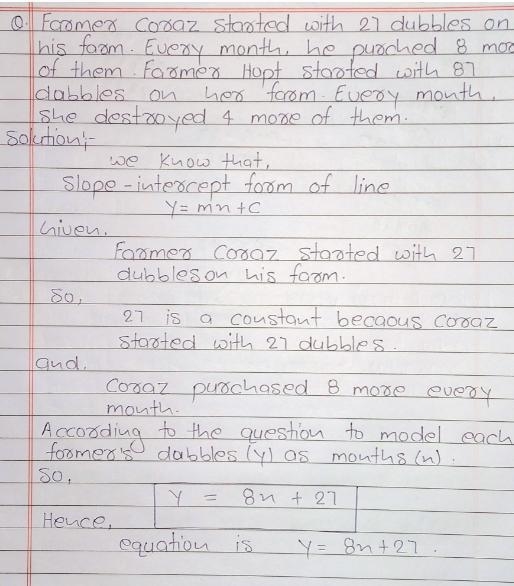 Q. Farmer Coraz started with 27 dubbles on
his farm. Every month, he purched 8 mor
of them. Farmer Hopt started with 87
dabbles on her farm. Every month,
she destroyed 4 more of them.
Solution:-
we know that,
Slope-intercept form of line
y = mn + c
Given,
Farmer Coraz started with 27
dubbles on his farm.
So,
27 is a constant becaous Coraz
started with 27 dubbles.
and,
Coraz purchased 8 more every
month.
According to the question to model each
formers dabbles (y) as months (n).
So,
y = 8n + 27
Hence,
equation is y = 8n + 27.